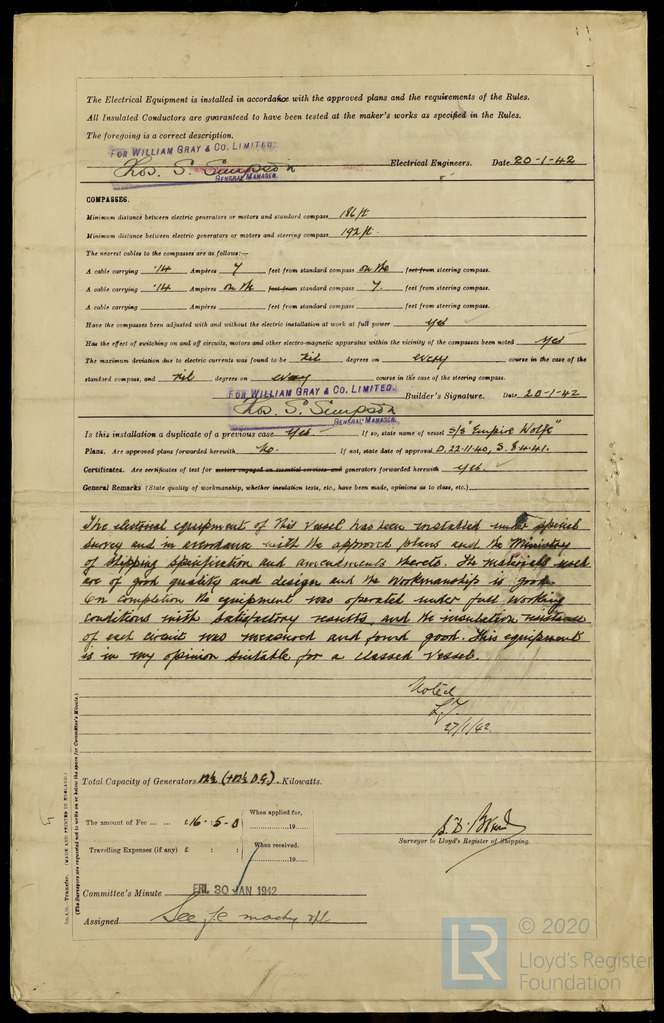 The Electrical Equipment is installed in accordance with the approved plans and the requirements of the Rules.
All Insulated Conductors are guaranteed to have been tested at the maker's works as specified in the Rules.
The foregoing is a correct description.
FOR WILLIAM GRAY & CO. LIMITED.
Thos. S. Simpson Electrical Engineers. Date 20-1-42
GENERAL MANAGER.
COMPASSES.
Minimum distance between electric generators or motors and standard compass 186 ft
Minimum distance between electric generators or motors and steering compass 192 ft.
The nearest cables to the compasses are as follows:—
A cable carrying .14 Ampères 7 feet from standard compass on the feet from steering compass.
A cable carrying .14 Ampères on the feet from standard compass 7. feet from steering compass.
A cable carrying Ampères feet from standard compass feet from steering compass.
Have the compasses been adjusted with and without the electric installation at work at full power yes
Has the effect of switching on and off circuits, motors and other electro-magnetic apparatus within the vicinity of the compasses been noted yes
The maximum deviation due to electric currents was found to be Nil degrees on every course in the case of the
standard compass, and nil degrees on every course in the case of the steering compass.
FOR WILLIAM GRAY & CO. LIMITED.
Thos. S. Simpson Builder's Signature. Date 20-1-42
GENERAL MANAGER.
Is this installation a duplicate of a previous case Yes If so, state name of vessel S/S "Empire Wolfe"
Plans. Are approved plans forwarded herewith No. If not, state date of approval D. 22.11.40, S. 8.4.41.
Certificates. Are certificates of test for motors engaged on essential services and generators forwarded herewith yes.
General Remarks (State quality of workmanship, whether insulation tests, etc., have been made, opinions as to class, etc.)
The electrical equipment of this vessel has been installed under special
survey and in accordance with the approved plans and the Ministry
of Shipping Specification and amendments thereto. The materials used
are of good quality and design and the workmanship is good.
On completion the equipment was operated under full working
conditions with satisfactory results, and the insulation resistance
of each circuit was measured and found good. This equipment
is in my opinion suitable for a classed vessel.
Noted
27/1/42
Total Capacity of Generators 12½ (+12½ D.G.). Kilowatts.
The amount of Fee £16 : 5 : 0 When applied for,
19
Travelling Expenses (if any) £ : : When received,
19
Surveyor to Lloyd's Register of Shipping.
Committee's Minute FRI. 30 JAN 1942
Assigned See J.E. machy rpt.
Transfer. (MADE AND PRINTED IN ENGLAND.)
(The Surveyors are requested not to write on or below the space for Committee's Minute.)
LR © 2020
Lloyd's Register
Foundation